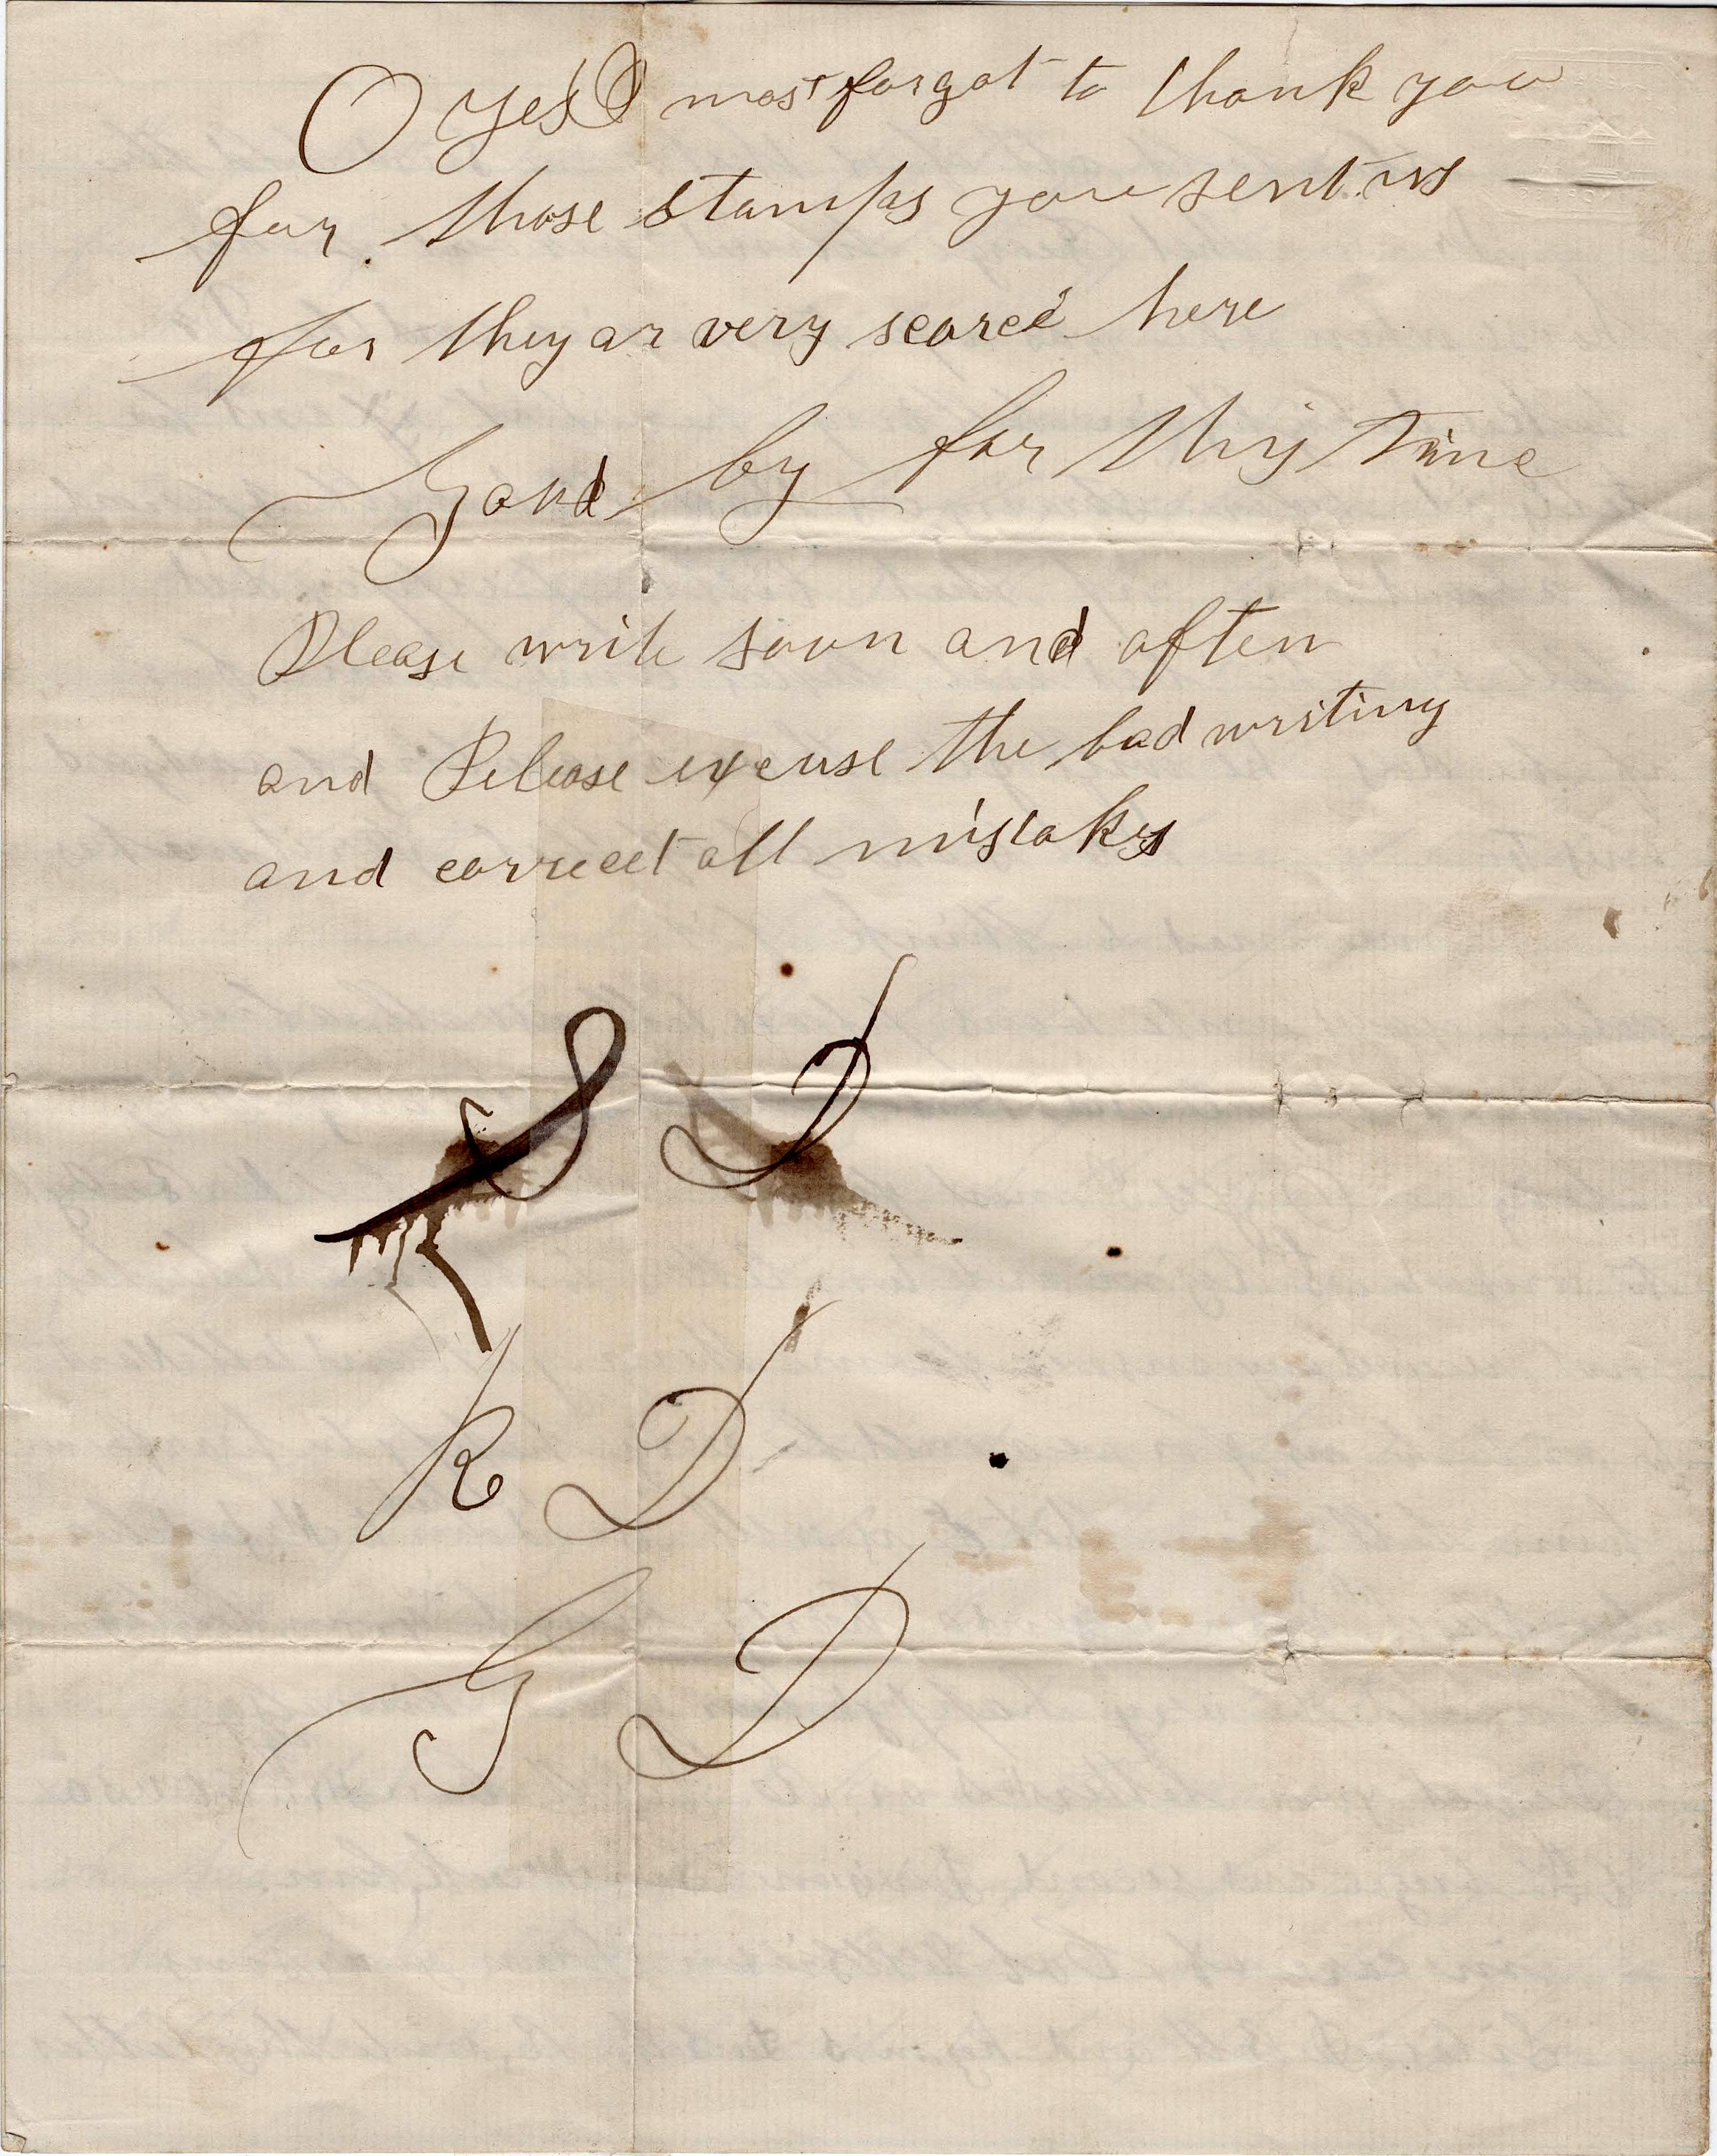 O yes I most forgot to thank you
for those stamps you sent us
for they ar very scarce here
Good by for this time
Please write soon and often
and Please excuse the bad writing
and correct all mistakes
S D
R D
G D